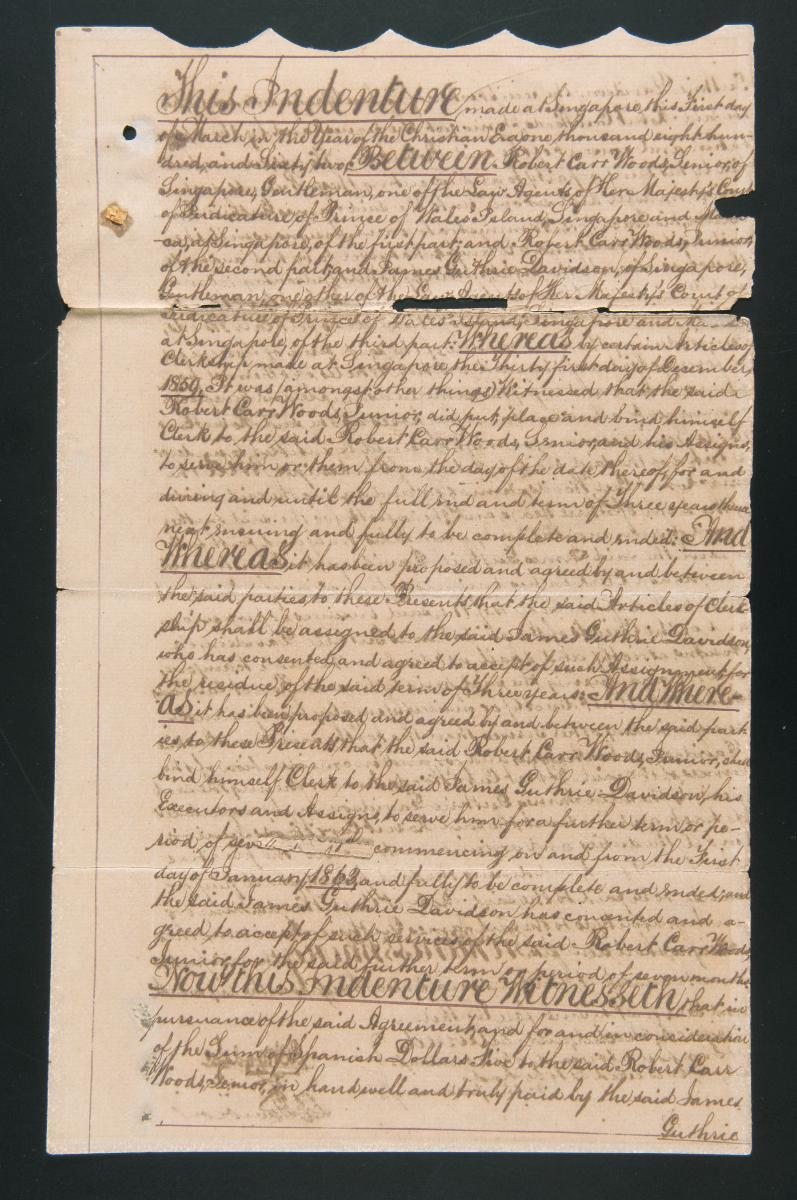 This Indenture made at Singapore this First day
of March in the Year of the Christian Era one thousand eight hun-
dred, and Sixty two, Between Robert Carr Woods, Senior, of
Singapore, Gentleman, one of the Law Agents, of Her Majesty's Court
of Judicature of Prince of Wales' Island, Singapore and Malac
-ca, at Singapore, of the first part; and Robert Carr Woods, Junior,
of the second part; and James Guthrie Davidson, of Singapore,
Gentleman, one other of the Law Agents of Her Majesty's Court of
Judicature of Prince of Wales' Island, Singapore and
at Singapore, of the third part: Whereas by certain Articles of
Clerkship made at Singapore, the Thirty first day of December,
1859, It was (amongst other things) Witnessed that the said
Robert Carr Woods, Junior, did put, place and bind himself
Clerk to the said Robert Carr Woods, Senior, and his Assigns,
to serve him or them from the day of the date thereof, for and
during and until the full end and term of Three years thence
next ensuing and fully to be complete and ended: And
Whereas it has been proposed and agreed by and between
the said parties, to these Presents, that the said Articles of Clerk-
ship shall be assigned to the said James Guthrie Davidson,
who has consented and agreed to accept of such Assignment, for
the residue, of the said term of Three years: And Where-
as, it has been proposed, and agreed by and between the said part
ies, to these Presents, that the said Robert Carr Woods, Junior, shall
bind himself Clerk to the said James Guthrie Davidson, his
Executors and Assigns, to serve him for a further term or pe-
riod, of commencing on and from the First
day of January, 1863, and fully to be complete and ended; and
the said James Guthrie Davidson has consented and a-
greed, to accept, of such services of the said Robert Carr Woods,
Junior, for the said further term or period of seven months
Now this Indenture Witnesseth, that in
pursuance of the said Agreement, and for and in consideration
of the Sum of Spanish Dollars Five to the said Robert Carr
Woods, Senior, in hand well and truly paid by the said James
Guthrie